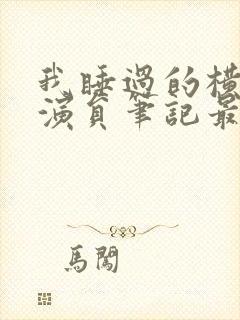 我睡過的橫
演員筆記最
馬闖